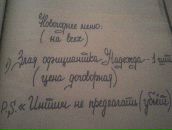 Новогоднее меню:
(на всех)
1) Злая официантка Надежда - 1 шт
(цена договорная)
P.S. «Интим не предлагать! (убьёт)